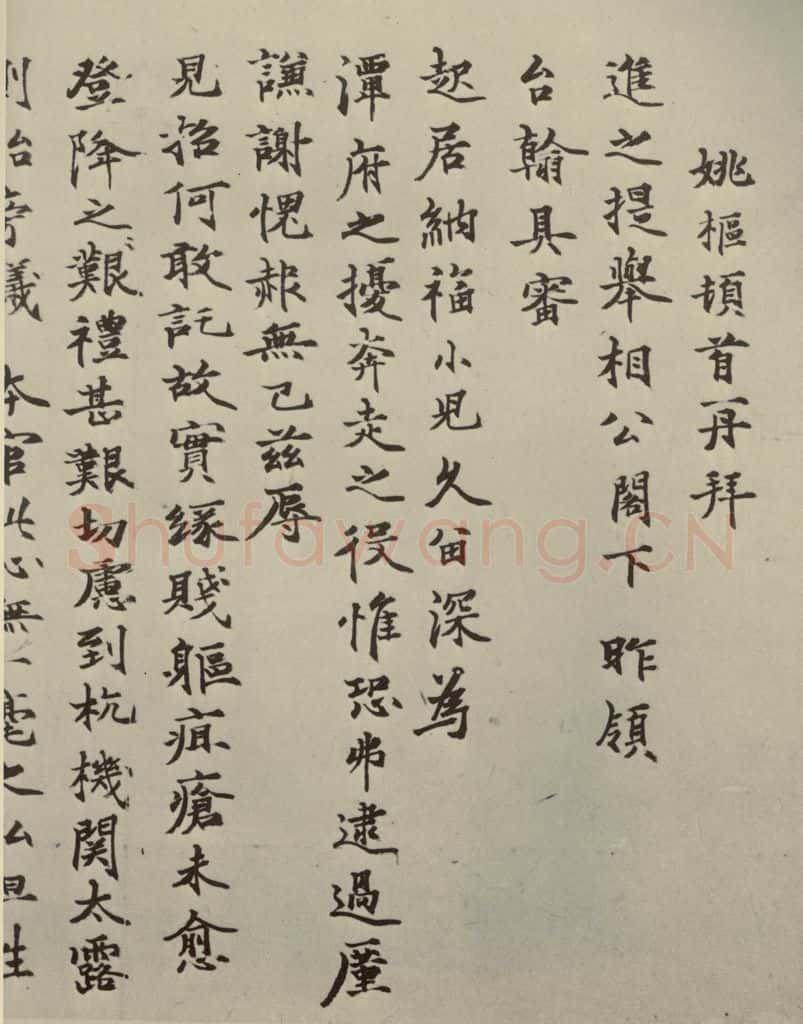 姚樞頓首再拜
進之提舉相公閣下昨領
台翰具審
起居納福小児久留深為
潭府之擾奔走之役惟恐弗逮過廑
謙謝愧赧無已茲辱
見招何敢託故實緣賤軀疽瘡未愈
登降之艱禮甚艱切慮到杭機関太露
則 議 本官此心無一毫之 但 生
Shufawang.CN